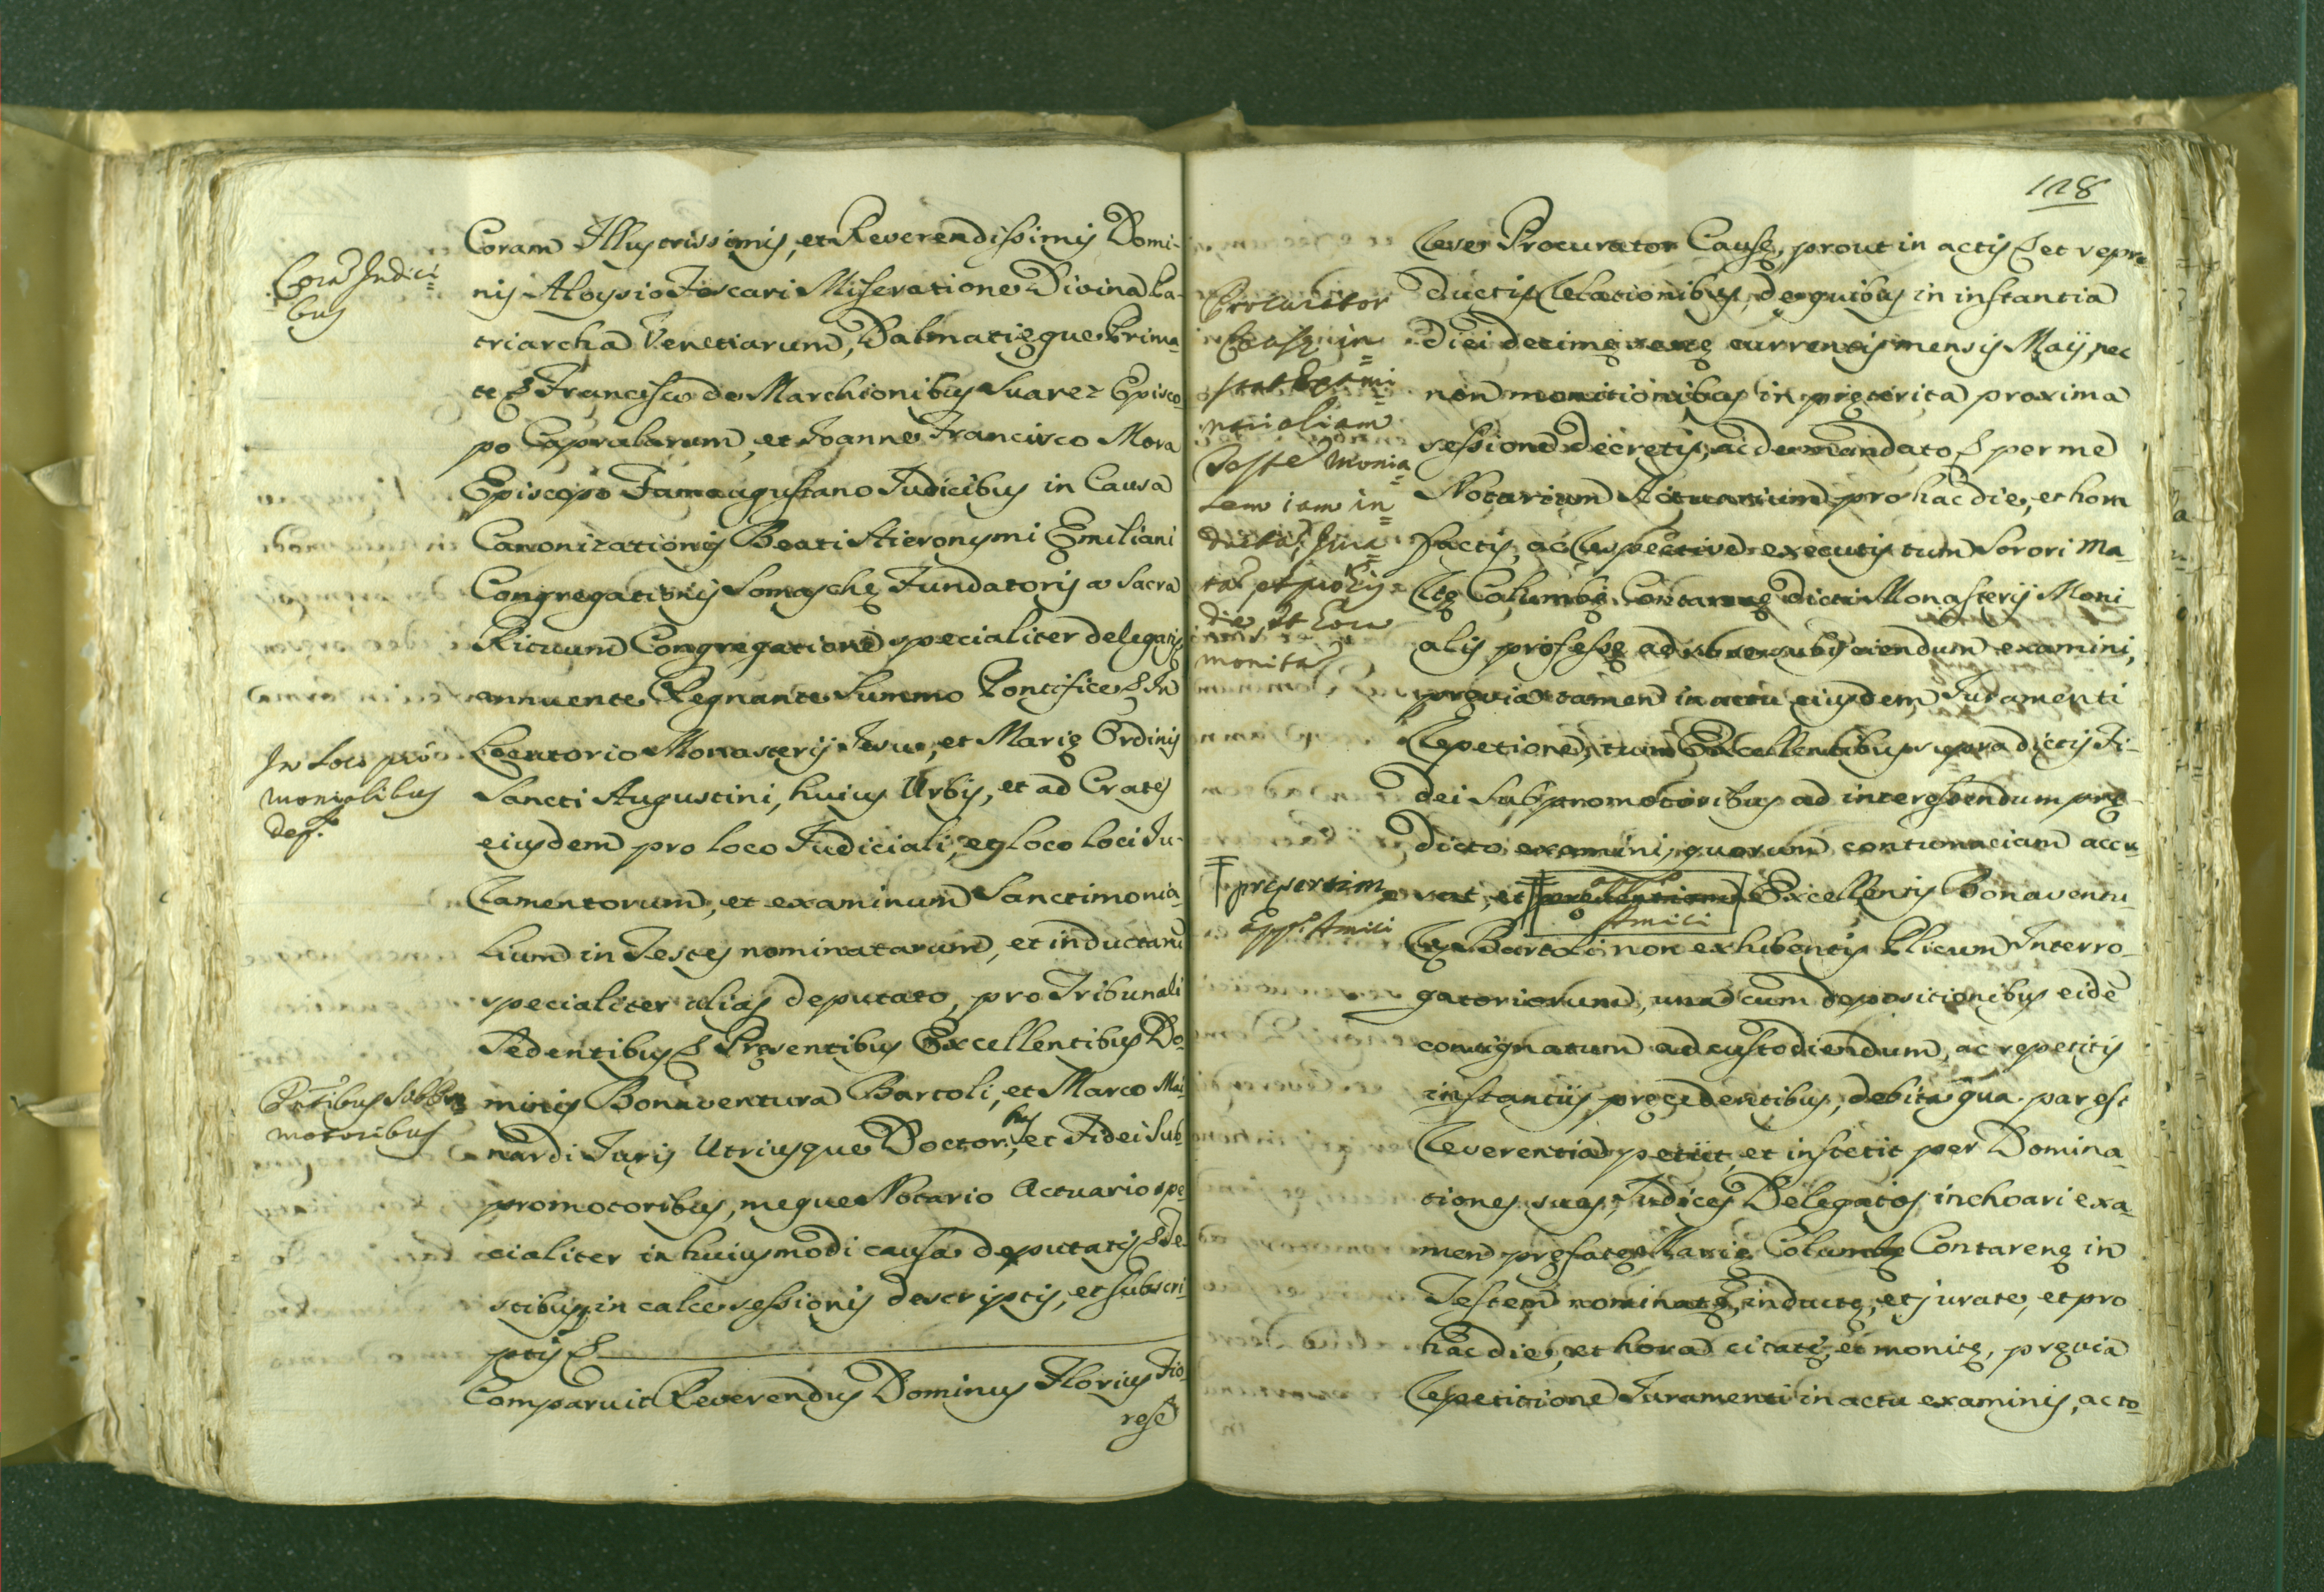 Corã Judici=
bus
Coram Illustrissimis, et Reverendissimis Domi-
nis Aloysio Foscari Miseratione Divina Pa-
triarcha Venetiarum, Dalmatięque Prima-
te & Francisco de Marchionibus Suarez Episco-
po Capralarum, et Joanne Francisco Mora
Episcopo Famaugustano Judicibus in Causa
Canonizationis Beati Hieronymi Emiliani
Congregationis Somaschę Fundatoris a Sacra
Rituum Congregatione specialiter delegatis,
annuente Regnante Summo Pontifice & In
In Loco pro
monialibus
dep.
Locutorio Monasterij Jesu, et Marię Ordinis
Sancti Augustini, huius Urbis, et ad Crates
eiusdem pro loco Judiciali, et Loco loci Ju-
ramentorum, et examinum Sanctimonia-
lium in Testes nominatarum, et inductarũ
specialiter alias deputato, pro Tribunali
Sedentibus & Pręsentibus Excellentibus Do-
Pñtibus SubPro
motoribus
minis Bonaventura Bartoli, et Marco Mai-
nardi Juris Utriusque Doctoribus, et Fidei Sub-
promotoribus, meque Notario Actuario spe-
cialiter in huiusmodi causa deputatis & Te-
stibus in calce sessionis descriptis, et subscri-
ptis &
Comparuit Reverendus Dominus Florius Fio-
rese
128
Rever Procurator Causę, prout in actis & et repro-
ductis Relationibus, de quibus in instantia
diei decimę sextę currentis mensis Maij, nec
non monitionibus in pręterita proxima
sessione decretis, ac de mandato & per me
Notarium Actuarium pro hac die, et hora
factis, ac respective executis tum Sorori Ma-
rię Columbę Contarenę dicti Monasterij Moni-
alis professę ad subijciendum examini,
pręvia tamen in actu eiusdem Juramenti
repetione, tum Excellentibus supradictis Fi-
dei Subpromotoribus ad interessendum prę-
dicto examini, quorum contumaciam accu-
Procurator
Causę in=
stat
monialiam
Testẽ monia=
lem iam in=
ductã, Jura=
tã et pro his
die, et hora
monitã
‡ pręsertim
Appi Amici
savit, et Excellentis Bonaventu-
Amici
rę Bartoli non exhibentis Plicum Interro-
gatoriorum, una cum depositionibus eidẽ
consignatum ad custodiendum, ac repetitis
instantijs pręcedentibus, debita qua par est
Reverentia petijt, et institit per Domina-
tiones suas, Judices Delegatos inchoari exa-
men pręfatę Marię Columbę Contarenę in
Testem nominatę, inductę, et juratę, et pro
hac die, et hora citatę, et monitę, pręvia
repetitione Juramenti in actu examinis, ac to-